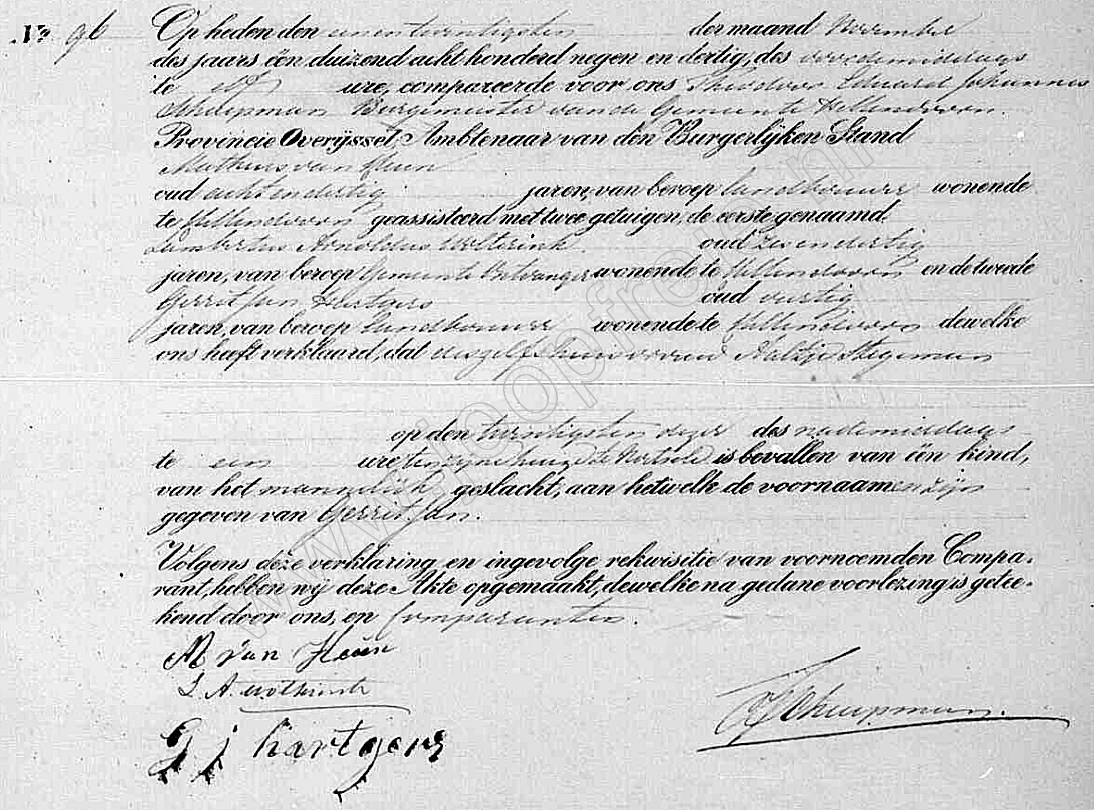 No 96 Op heden den eenentwintigsten der maand November
des jaars één duizend acht honderd negen en dertig, des voormiddags
te elf ure, compareerde voor ons Theodoor Eduard Johannes
Scheepman Burgemeester van de Gemeente Hellendoorn
Provincie Overijssel, Ambtenaar van den Burgerlijken Stand
Mathias van
oud achtendertig jaren, van beroep landbouwer wonende
te Hellendoorn geassisteerd met twee getuigen, de eerste genaamd
Lambertus Arnoldus Wolterink oud zevendertig
jaren, van beroep Gemeente Ontvanger wonende te Hellendoorn en de tweede
Gerrit Jan oud veertig
jaren, van beroep landbouwer wonende te Hellendoorn dewelke
ons heeft verklaard, dat deszelfs huisvrouw Aaltje Stegeman
op den twintigsten dezer des nademiddags
te een ure ten zijne huize te is bevallen van één kind,
van het mannelijk geslacht, aan hetwelk de voornaamen zijn
gegeven van Gerrit Jan.
Volgens deze verklaring en ingevolge rekwisitie van voornoemden Compa-
rant, hebben wij deze Akte opgemaakt, dewelke na gedane voorlezing is getee-
kend door ons, en Comparanten.
M van
L A wolterink
G J hartgers
Scheepman.